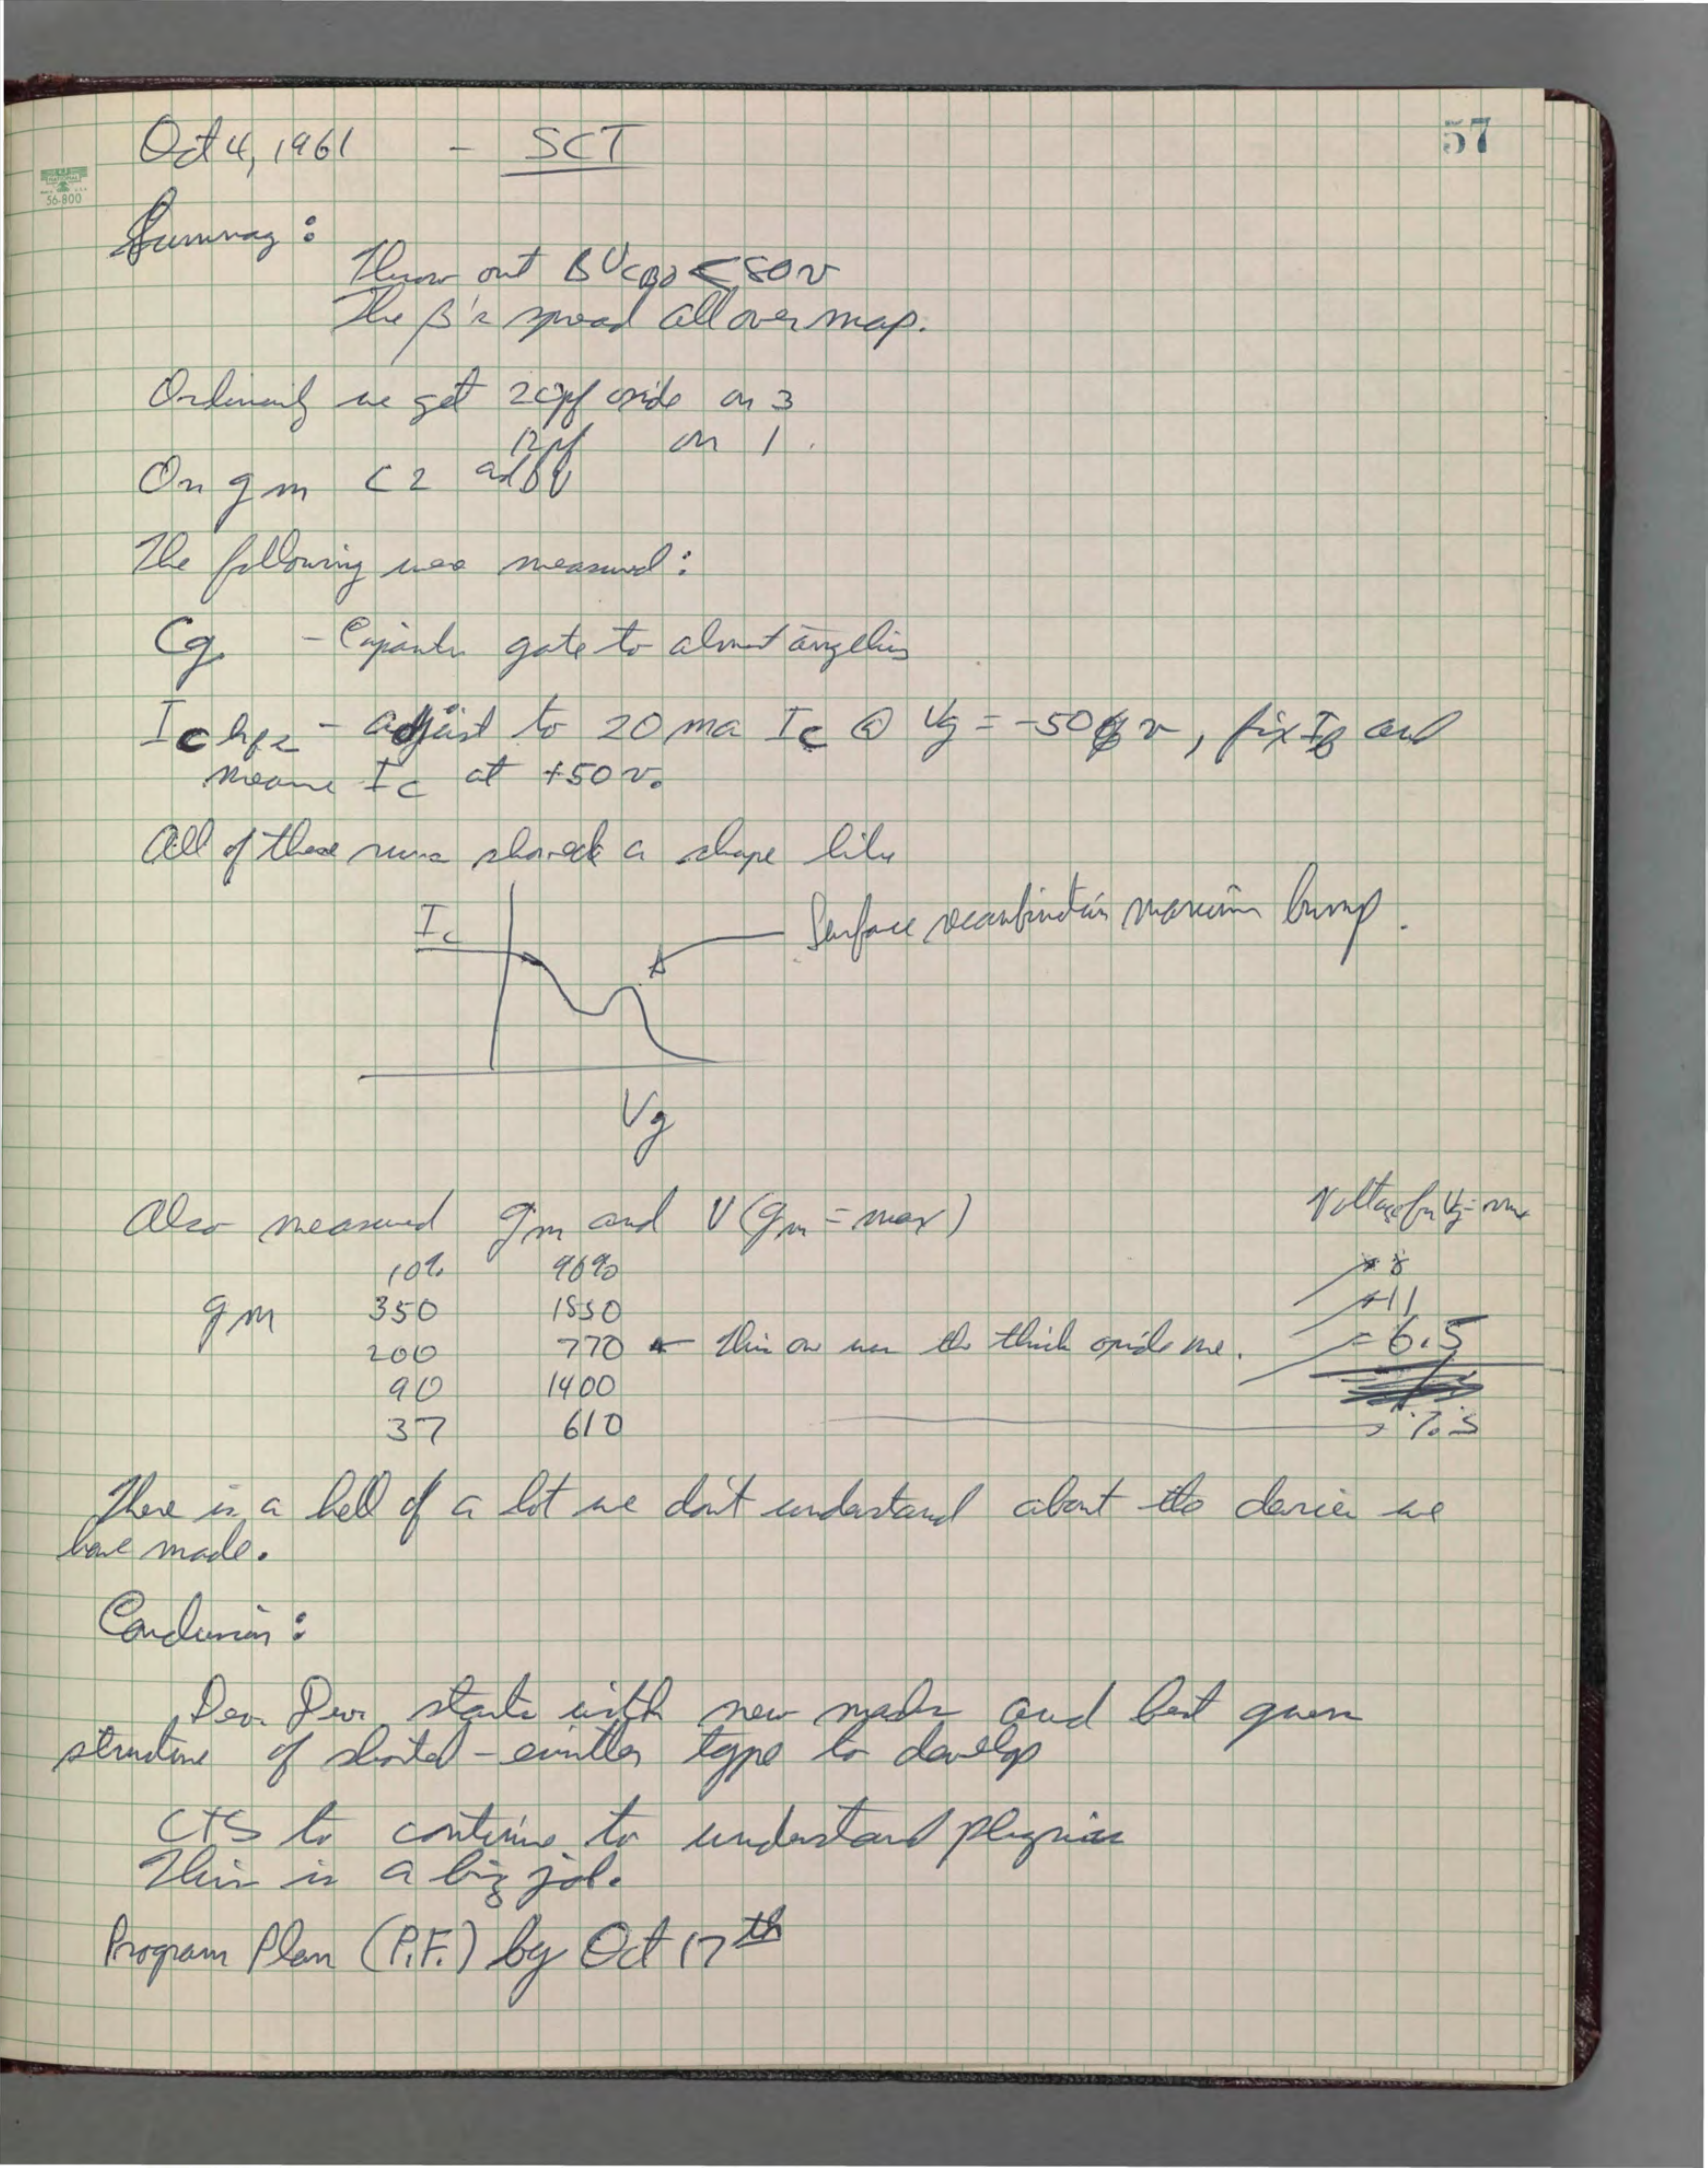 57
Oct 4, 1961 - SCT
56-800
Summary:
Throw out BVCBO < 80v
The β's spread all over map.
Ordinarily we get 20pf oxide on 3
12pf on 1.
On gm C2 and
The following was measured:
Cg - gate to almost anything
Ic hFE - adjust to 20 ma Ic @ Vg = -50 v, fix IB and
measure Ic at +50v.
All of these runs showed a shape like
Ic
Surface recombination maximum bump.
Vg
Also measured gm and V(gm = max)
Voltage for
10% 90%
8
gm 350 1550
11
200 770 ← This one was the thick oxide one.
6.5
90 1400
37 610
7.5
There is a hell of a lot we don't understand about the devices we
have made.
Conclusion:
Dev. Dev. starts with new masks and best guess
structure of shorted-emitter type to develop
CTS to continue to understand physics
This is a big job.
Program Plan (P.F.) by Oct 17th